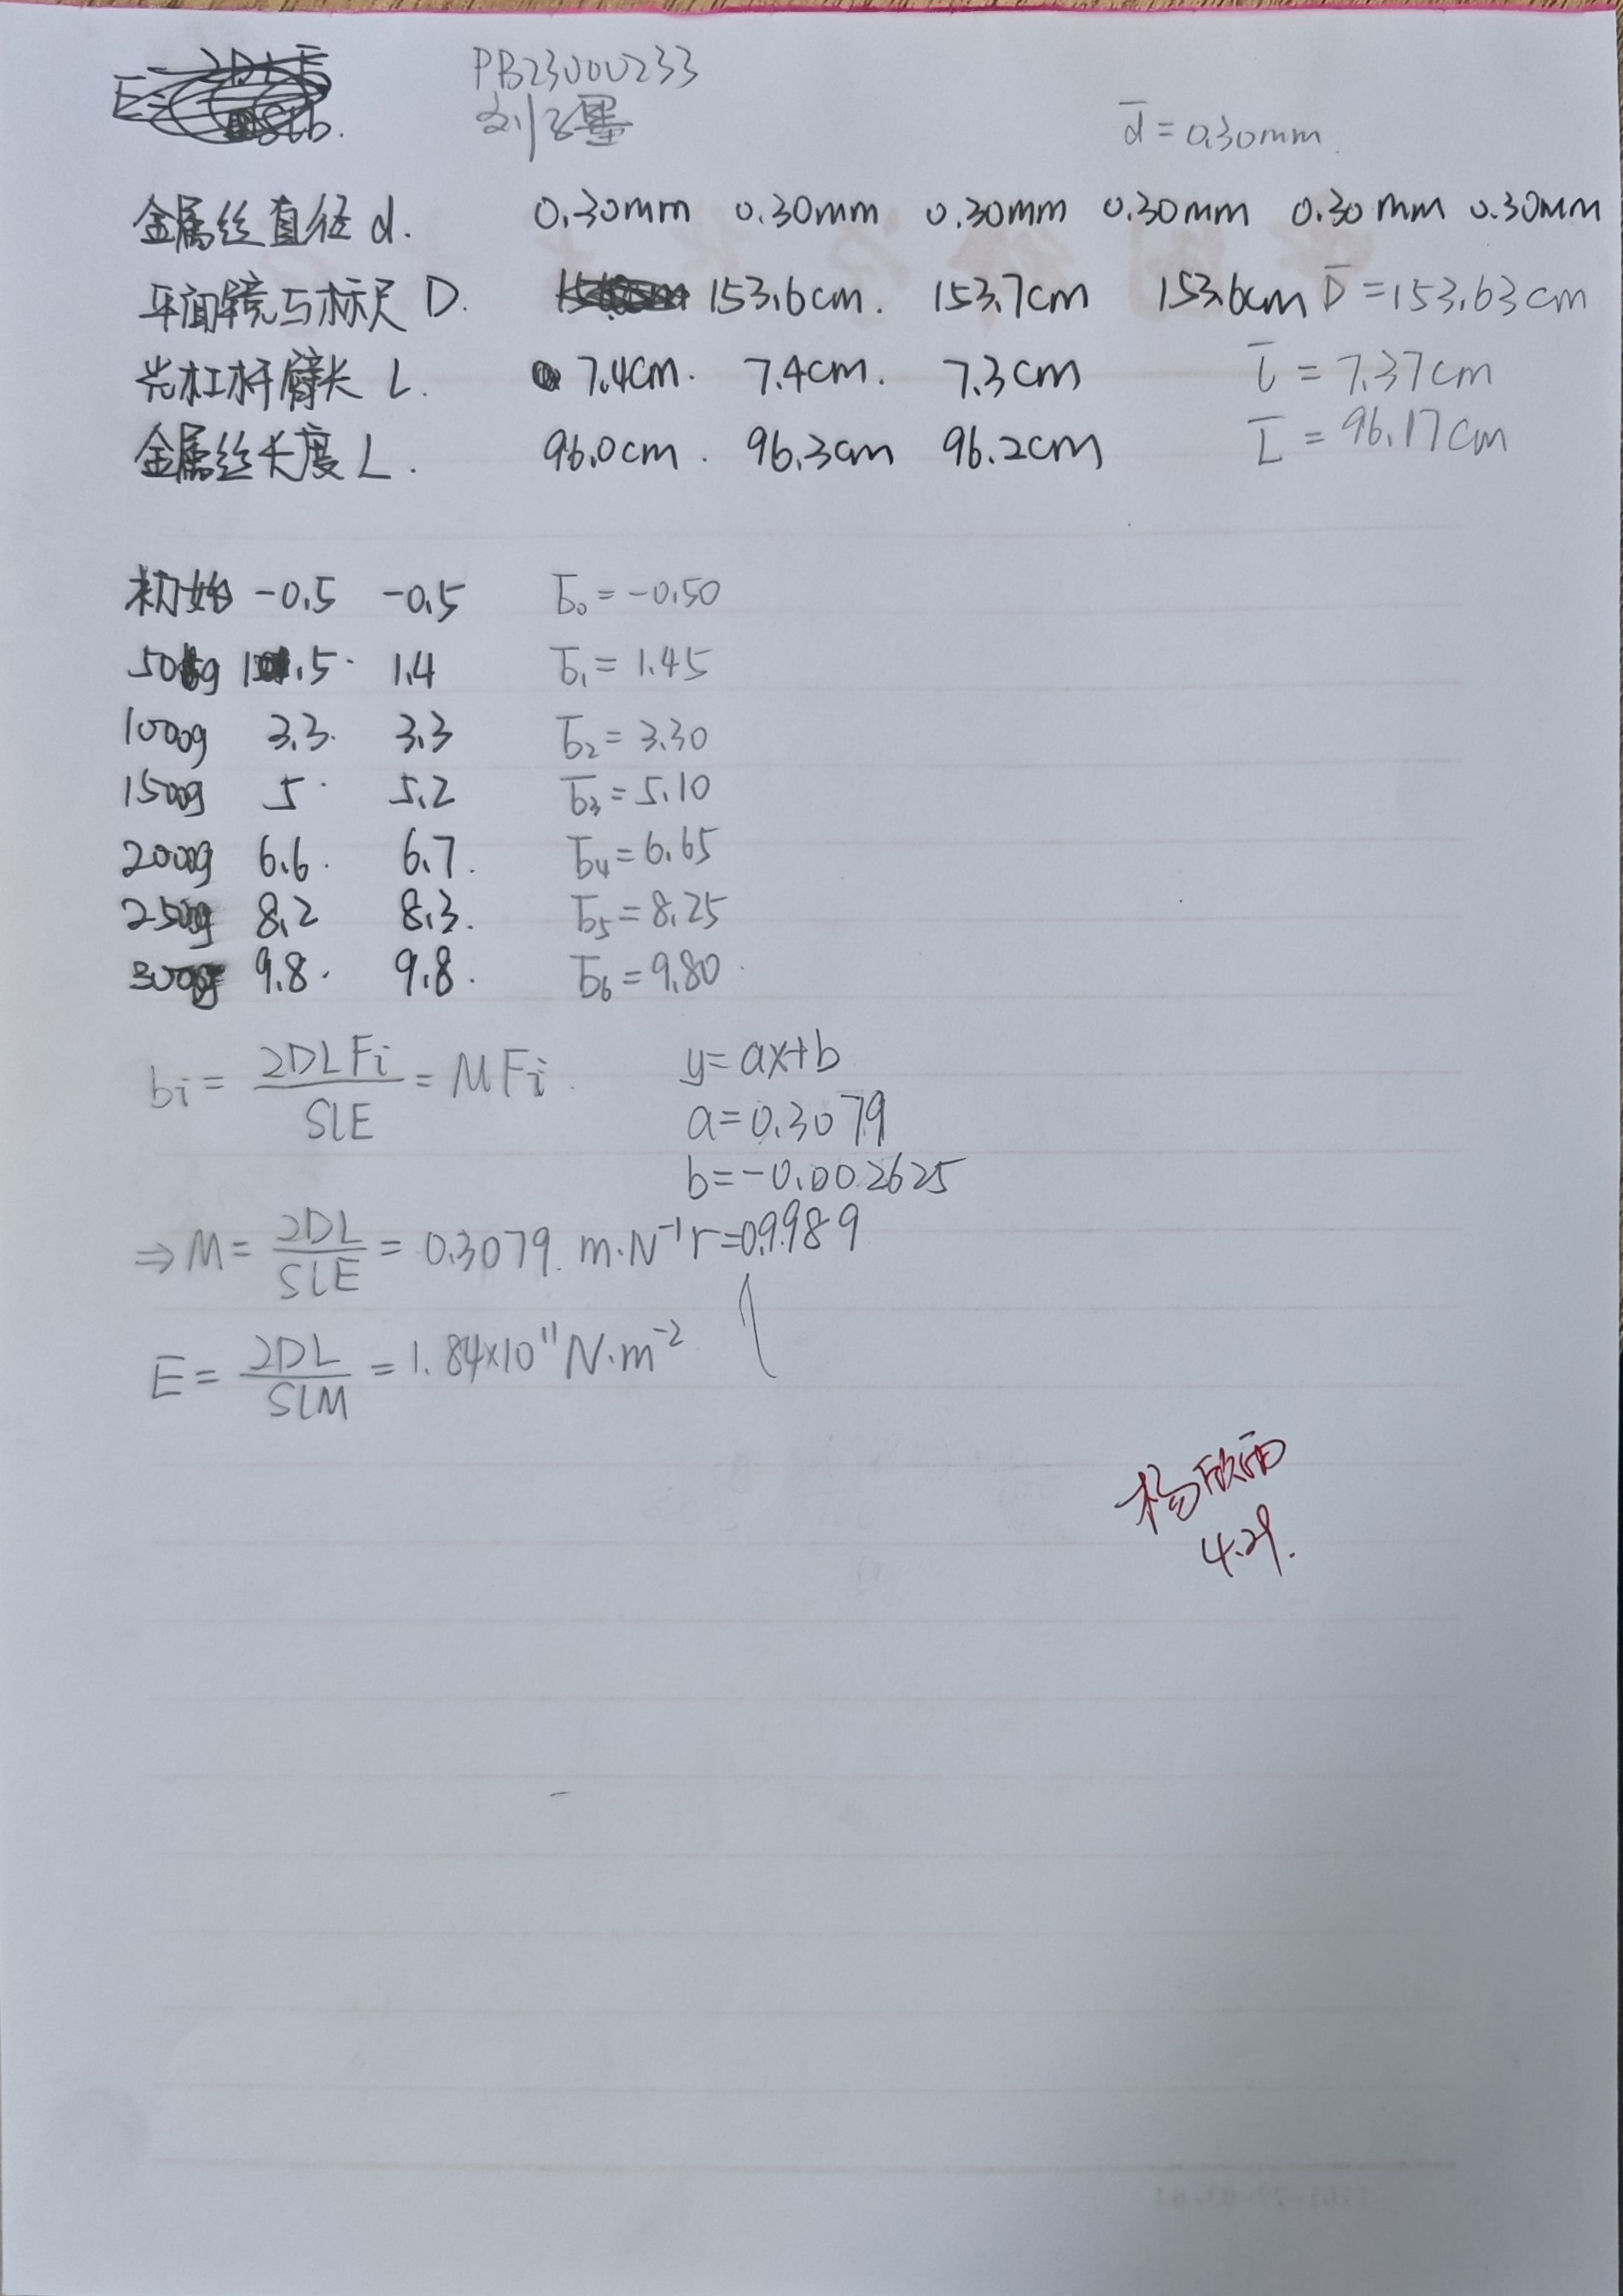 PB23000233
d̄ = 0.30mm.
金属丝直径 d. 0.30mm 0.30mm 0.30mm 0.30mm 0.30mm 0.30mm
平面镜与标尺 D. 153.6cm. 153.7cm 153.6cm D̄ = 153.63cm
光杠杆臂长 l. 7.4cm. 7.4cm. 7.3cm l̄ = 7.37cm
金属丝长度 L. 96.0cm. 96.3cm 96.2cm L̄ = 96.17cm
初始 -0.5 -0.5 b̄₀ = -0.50
500g 1.5 1.4 b̄₁ = 1.45
1000g 3.3. 3.3 b̄₂ = 3.30
1500g 5 5.2 b̄₃ = 5.10
2000g 6.6. 6.7. b̄₄ = 6.65
2500g 8.2 8.3. b̄₅ = 8.25
3000g 9.8. 9.8. b̄₆ = 9.80
bi = 2DLFi / SlE = MFi. y = ax+b
a = 0.3079
b = -0.002625
⇒ M = 2DL / SlE = 0.3079 m·N⁻¹ r = 0.9989
E = 2DL / SlM = 1.84×10¹¹ N·m⁻²
杨欣雨
4.29.